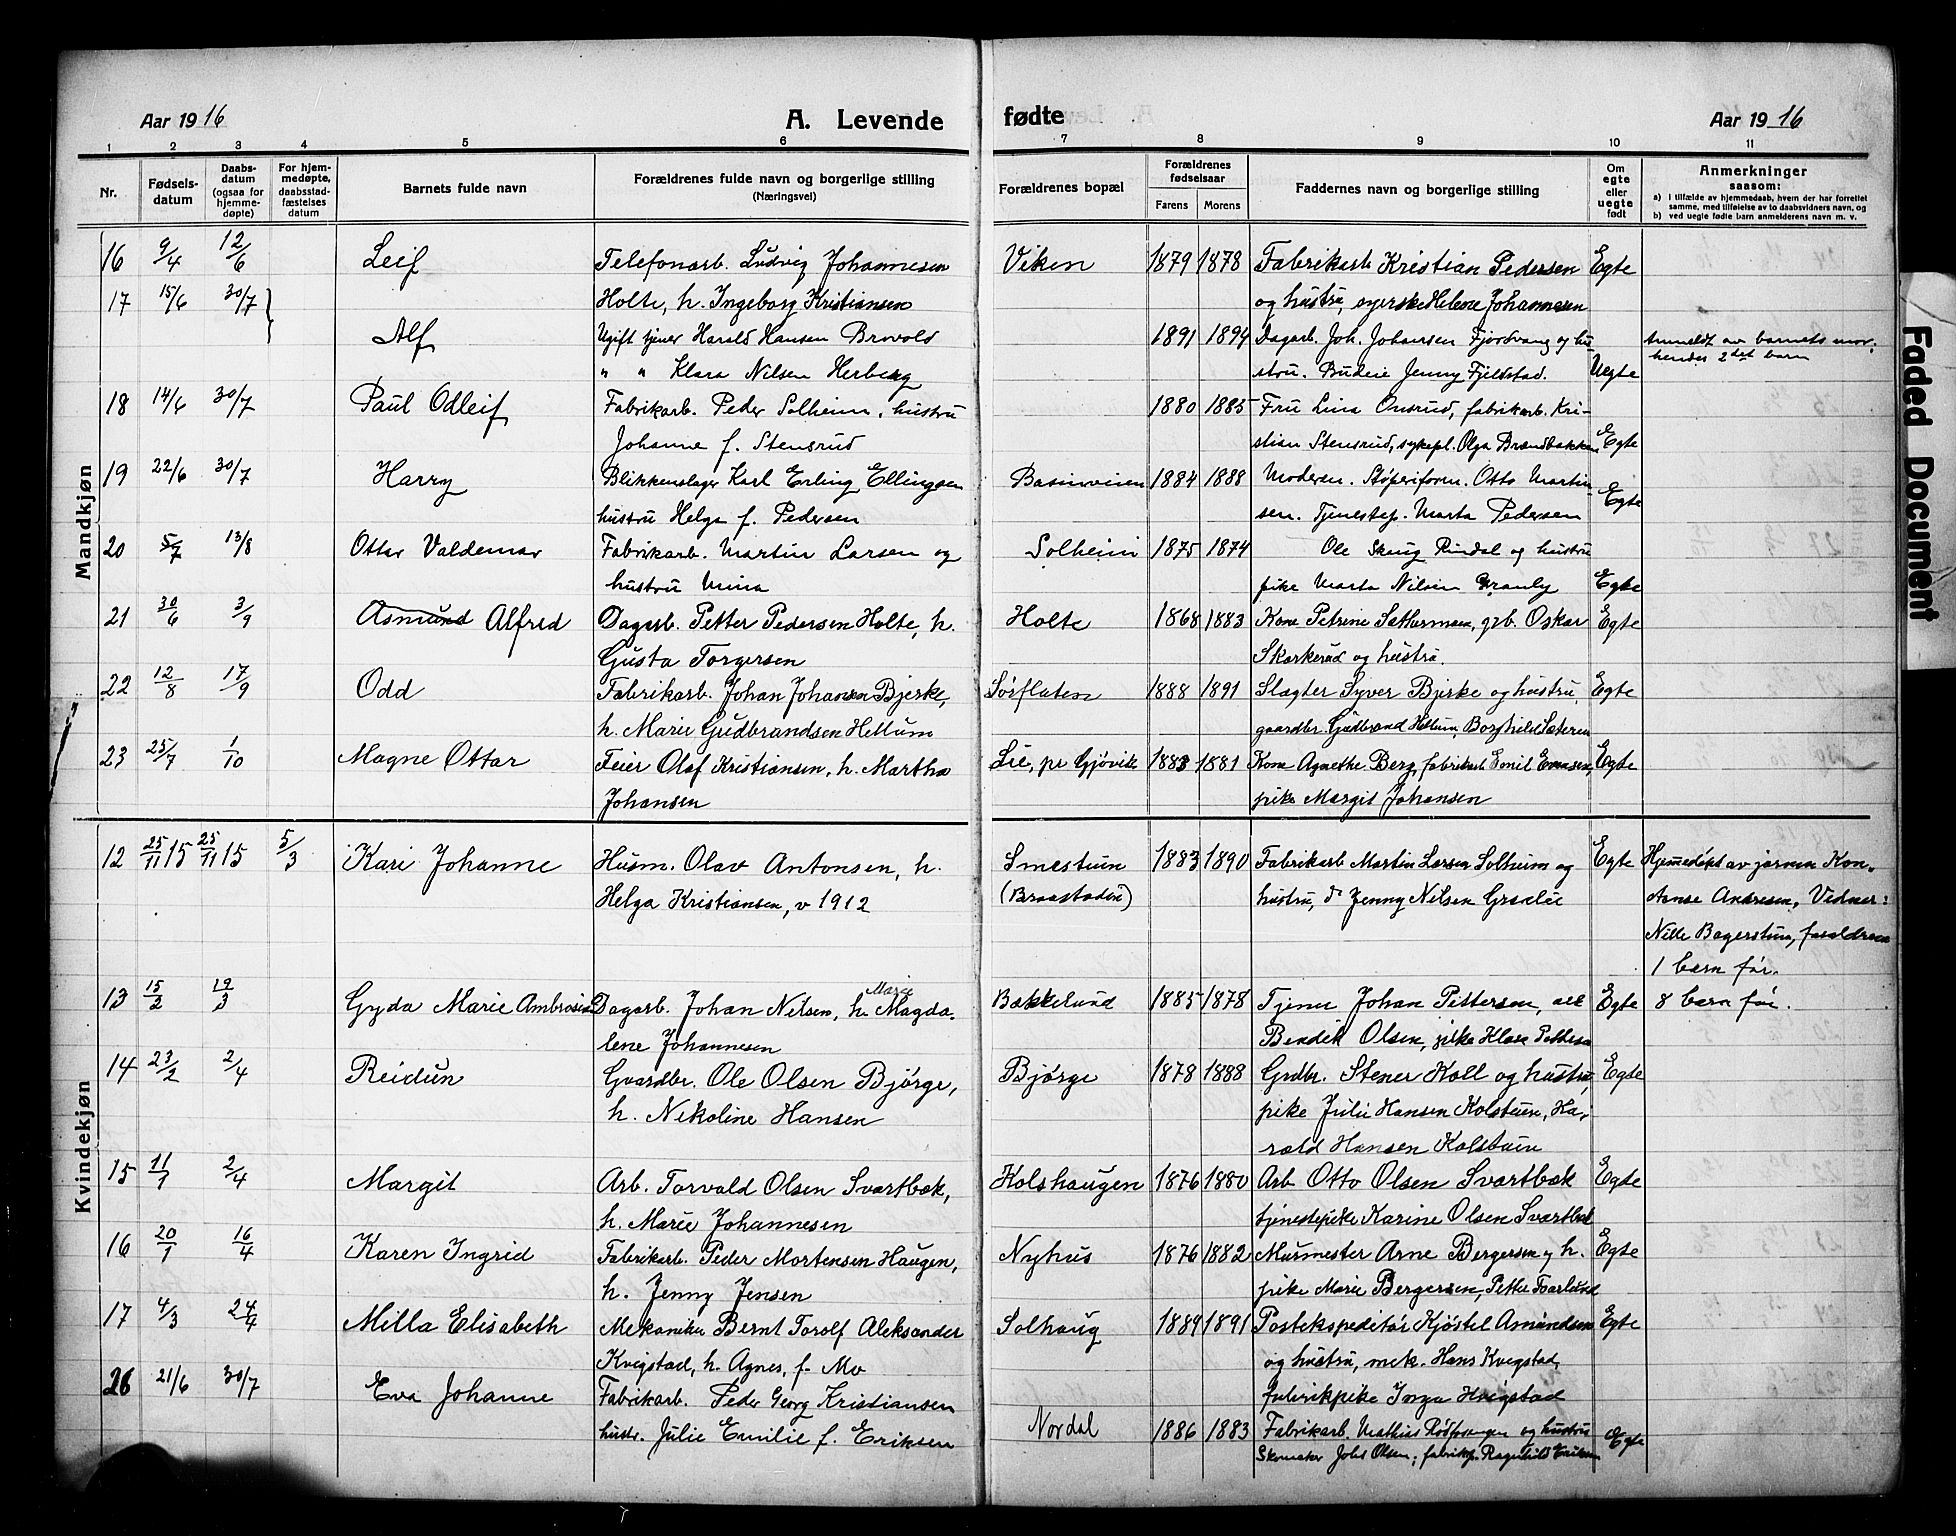 Aar 1916 A. Levende fødte Aar 1916
1 2 3 4 5 6 7 8 9 10 11
Nr. Fødselsdatum Daabsdatum (ogsaa for hjemmedøpte) For hjemmedøpte, daabsstadfæstelses datum Barnets fulde navn Forældrenes fulde navn og borgerlige stilling (Næringsvei) Forældrenes bopæl Forældrenes fødselsaar Farens Morens Faddernes navn og borgerlige stilling Om egte eller uegte født Anmerkninger saasom:
a) i tilfælde av hjemmedaab, hvem der har forrettet samme, med tilføielse av to daabsvidners navn, og
b) ved uegte fødte barn anmelderens navn m. v.
Mandkjøn
16 9/4 12/6 Leif Telefonarb. Ludvig Johannesen Viken 1879 1878 Fabrikarb Kristian Pedersen Egte
17 15/6 30/7 Holte, h. Ingeborg Kristiansen og hustru, syerske Helene Johannesen
Alf Ugift tjener Harald Hansen Brovold 1891 1894 Dagarb. Joh. Johansen Fjordvang og hu- Anmeldt av barnets mor;
" " Klara Nilsen Herberg stru. Budeie Jenny Fjeldstad. Uegte hendes 2det barn
18 14/6 30/7 Paul Odleif Fabrikarb. Peder Solheim, hustru 1880 1885 Fru Lina Onsrud, fabrikarb. Kri-
Johanne f. Stensrud stian Stensrud, sykepl. Olga Brændbakken Egte
19 22/6 30/7 Harry Blikkenslager Karl Erling Ellingsen 1884 1888 Moderen. Støperiform. Otto Martin-
hustru Helga f. Pedersen sen. Tjenestep. Marta Pedersen Egte
20 5/7 13/8 Ottar Valdemar Fabrikarb. Martin Larsen og Solheim 1875 1874 Ole Skaug Rindal og hustru
hustru Mina pike Marta Nilsen Granly Egte
21 30/6 3/9 Asmund Alfred Dagarb. Petter Pedersen Holte, h. Holte 1868 1883 Kone Petrine grb. Oskar Egte
Gusta Torgersen Skarkerud og hustru.
22 12/8 17/9 Odd Fabrikarb. Johan Johansen Bjerke, Sørflaten 1888 1891 Slagter Syver Bjerke og hustru, Egte
h. Marie Gudbrandsen Hellum gaardbr. Gudbrand Hellum, Borghild Sæteren
23 25/7 1/10 Magne Ottar Feier Olaf Kristiansen, h. Martha Lie, pr Gjøvik 1883 1881 Kone Agnethe Berg, fabrikarb Emil Evensen, Egte
Johansen pike Margit Johansen
Kvindekjøn
12 25/11 15 25/11 15 5/3 Kari Johanne Husm. Olav Antonsen, h. Smestuen 1883 1890 Fabrikarb Martin Larsen Solheim og Egte Hjemmedøpt av jormor Kon-
Helga Kristiansen, v 1912 (Braastadeie) hustru, do Jenny Nilsen Grælie stanse Andresen, Vidner:
Nille Bagerstuen, forældrene
1 barn før.
13 15/2 19/3 Gyda Marie Ambrosine Dagarb. Johan Nilsen, h. Marie Magda- Bækkelund 1885 1878 Tjener Johan Pettersen, Egte 8 barn før.
lene Johannesen Bendik Olsen, pike Klara
14 23/2 2/4 Reidun Gvardbr. Ole Olsen Bjørge, Bjørge 1878 1888 Grdbr. Stener Koll og hustru, Egte
h. Nikoline Hansen pike Julie Hansen Kolstuen, Ha-
rald Hansen Kolstuen
15 11/1 2/4 Margit Arb. Torvald Olsen Svartbæk, Kolshaugen 1876 1880 Arb Otto Olsen Svartbæk Egte
h. Marie Johannesen tjenestepike Karine Olsen Svartbæk
16 20/1 16/4 Karen Ingrid Fabrikarb. Peder Mortensen Haugen, Nyhus 1876 1882 Murmester Arne Bergersen og h. Egte
h. Jenny Jensen pike Marie Bergersen,
17 4/3 24/4 Milla Elisabeth Mekaniker Bernt Torolf Aleksander Solhaug 1889 1891 Postekspeditør Kjøstel Amundsen Egte
Kvigstad, h. Agnes, f. Mo og hustru, mek. Hans Kvigstad,
26 21/6 30/7 Eva Johanne Fabrikarb. Peder Georg Kristiansen fabrikpike Inga Kvigstad
hustr. Julie Emilie f. Eriksen Nordal 1886 1883 Fabrikarb. Mathias og hustru
Skomaker Johs Olsen; fabrikp. Ragnhild Eriksen Egte
Faded Document